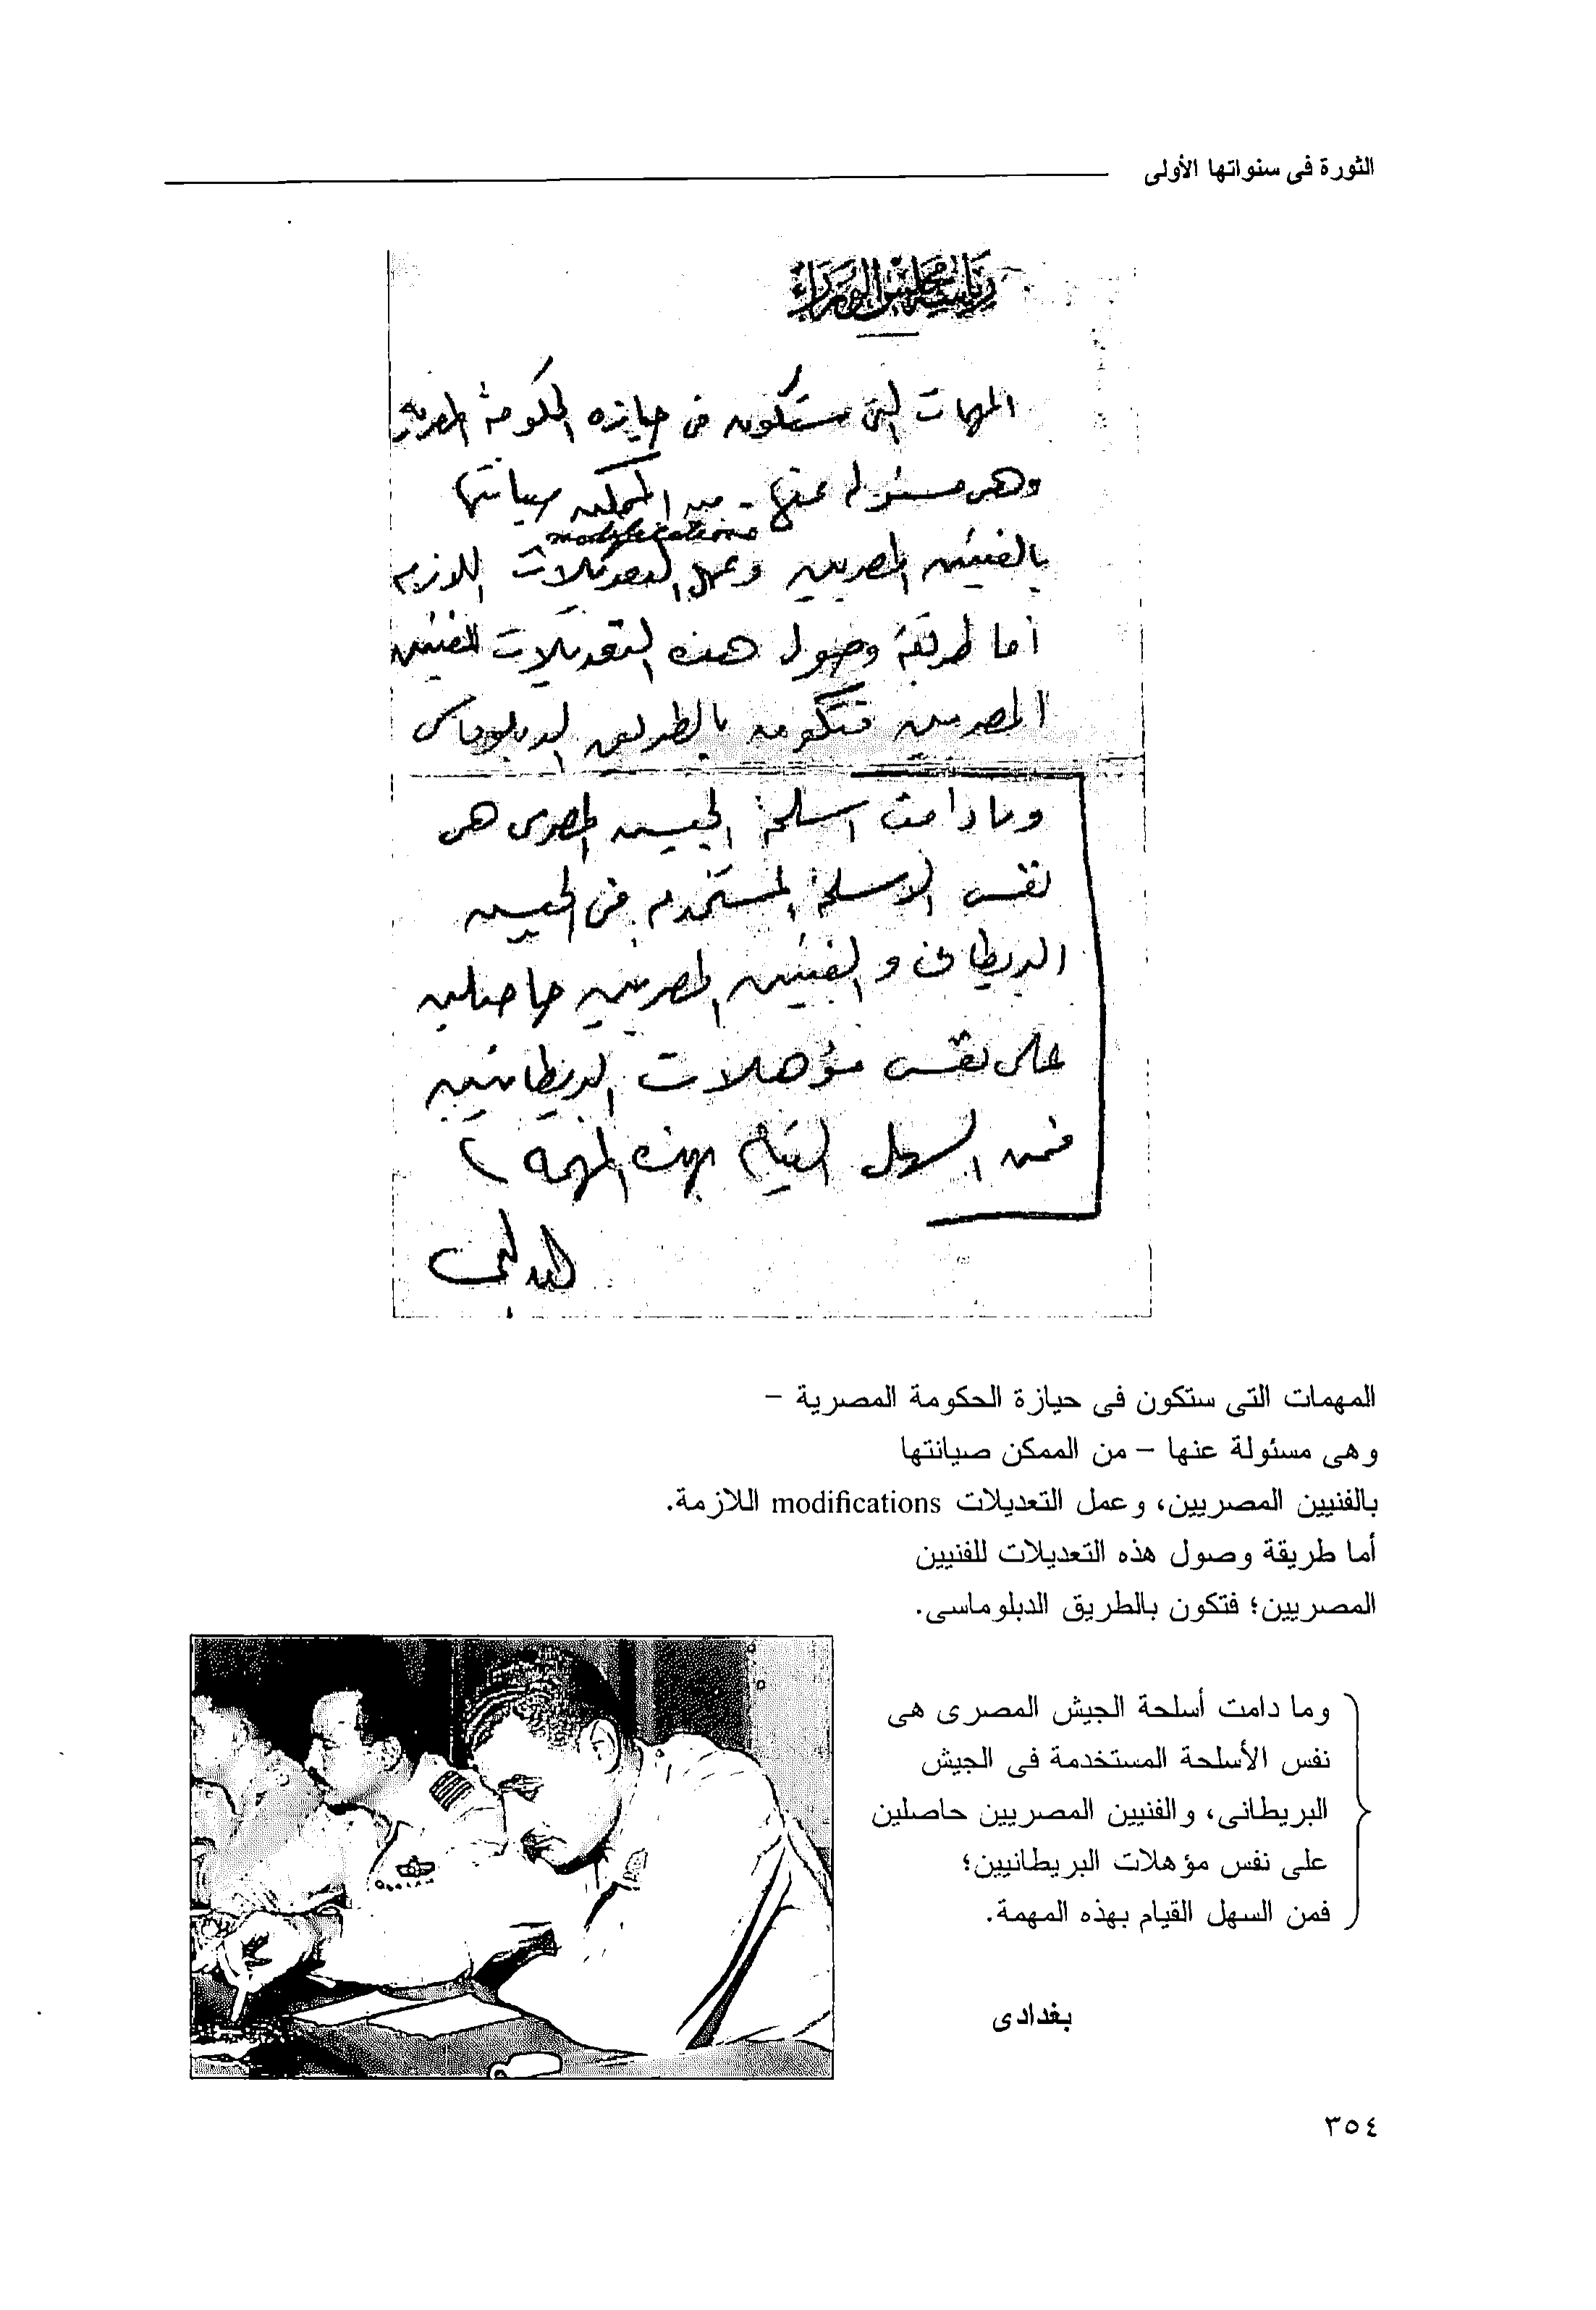 الثورة فى سنواتها الأولى
رياسة مجلس الوزراء
المهمات التى ستكون فى حيازه الحكومة المصرية
وهى مسئولة عنها - من الممكن صيانتها
modifications
بالفنيين المصريين وعمل التعديلات اللازمه
أما طريقة وصول هذه التعديلات للفنيين
المصريين فتكون بالطريق الدبلوماسى
وما دامت اسلحة الجيش المصرى هى
نفس الاسلحة المستخدمه فى الجيش
البريطانى والفنيين المصريين حاصلين
على نفس مؤهلات البريطانيين
فمن السهل القيام بهذه المهمه
المهمات التى ستكون فى حيازة الحكومة المصرية –
وهى مسئولة عنها – من الممكن صيانتها
بالفنيين المصريين، وعمل التعديلات modifications اللازمة.
أما طريقة وصول هذه التعديلات للفنيين
المصريين؛ فتكون بالطريق الدبلوماسى.
وما دامت أسلحة الجيش المصرى هى
نفس الأسلحة المستخدمة فى الجيش
البريطانى، والفنيين المصريين حاصلين
على نفس مؤهلات البريطانيين؛
فمن السهل القيام بهذه المهمة.
بغدادى
٣٥٤